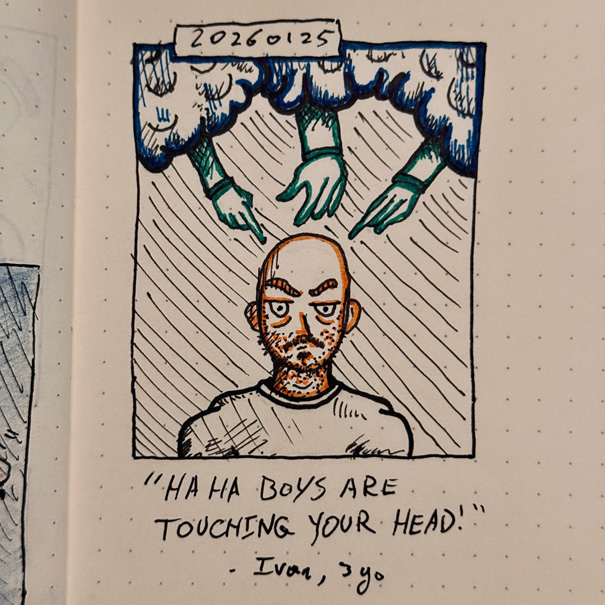 20260125
"HA HA BOYS ARE
TOUCHING YOUR HEAD!"
- Ivan, 3 yo